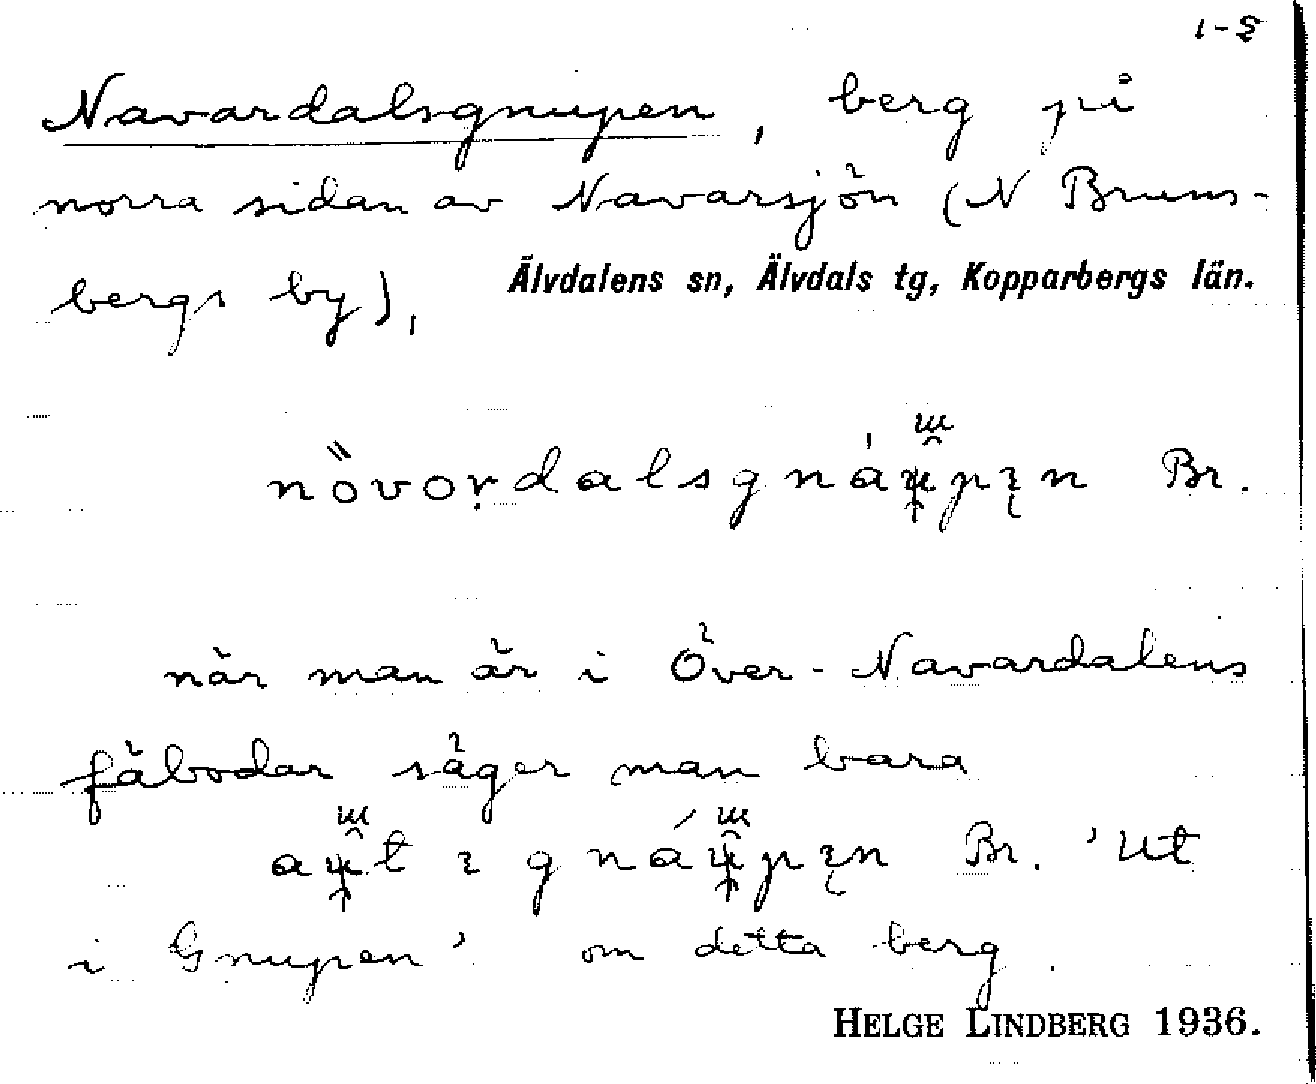 1-5
Navardalsgnupen, berg på
norra sidan av Navarsjön (N Bruns-
bergs by),
Älvdalens sn, Älvdals tg, Kopparbergs län.
Br.
när man är i Över-Navardalens
fäbodar säger man bara
Br. 'Ut
i Gnupen' om detta berg.
HELGE LINDBERG 1936.